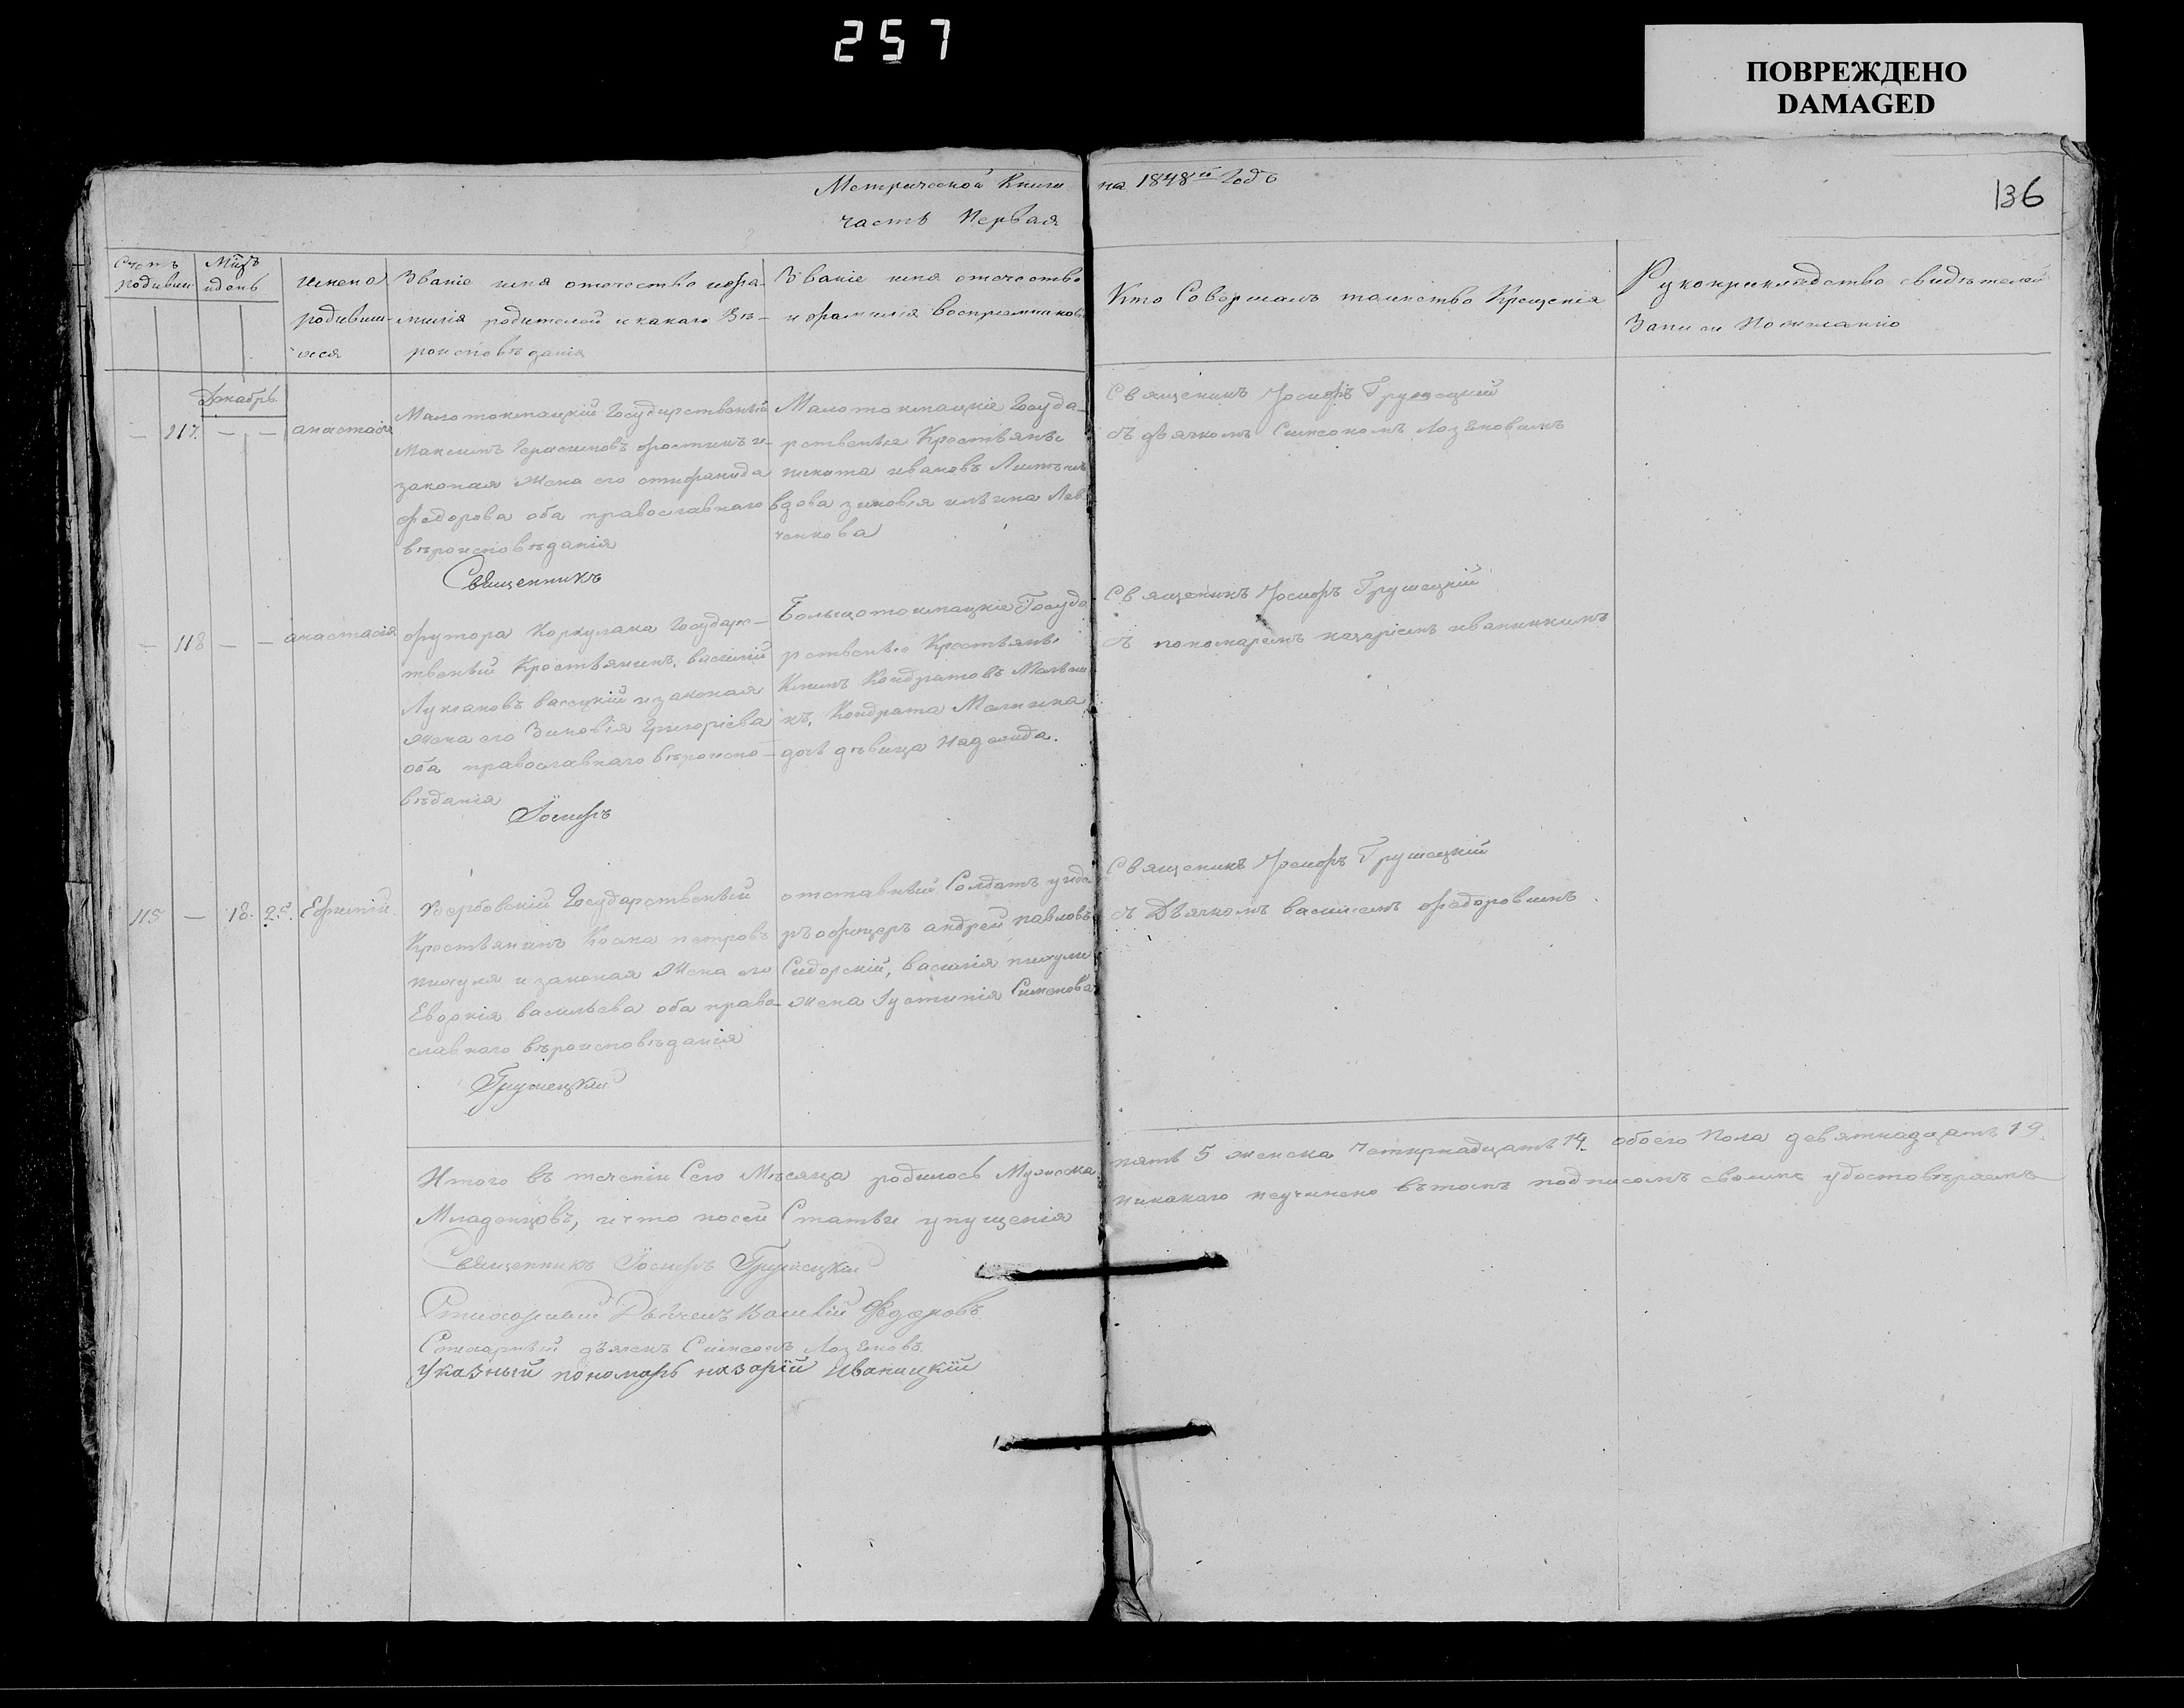 257
ПОВРЕЖДЕНО
DAMAGED
Метрической Книги на 1848й Годъ
часть Первая
136
Счетъ родивши
Мцъ и день
имена родивши-хся
Званіе имя отечество и фа-
милія родителей и какаго Вѣ-
роисповѣданія
Званіе имя отечество
и фамилія воспріемниковъ
Кто Совершалъ таинство Крещенія
Рукоприкладство свидѣтелей
Записи По желанію
Декабрь
— 117. — — анастасія
Малотокмацкій Государственый
Максимъ Герасимовъ и
законая жена его
федорова оба православнаго
вѣроисповѣданія
Малотокмацкіе Госуда-
рственые Крестьяне
никита ивановъ
вдова зиновія ильина Лев
ченкова
Священикъ Іосифъ Грушецкій
съ дьячкомъ Симеономъ
Священникъ
— 118 — — анастасія
футора Коркулака Государс-
твеный Крестьянинъ, василій
Лукіановъ и законая
жена его Зиновія Григоріева
оба православнаго вѣроиспо-
вѣданія
Большотокмацкіе Госуда
рственые Крестьяне
Климъ Кондратовъ Мельни
къ, Кондрата Мельника
дочь дѣвица Надежда.
Священикъ Іосифъ Грушецкій
съ пономаремъ назаріемъ иваницкимъ
Іосифъ
115 — 18. 25. Евфимій.
Вербовскій Государственый
Крестьянинъ Косма петровъ
пихуля и законая жена его
Евдокія васильева оба право-
славнаго вѣроисповѣданія
отставный Солдатъ унде
ръ офицеръ андрей павловъ
Сидорскій, василія пихули
жена Іустинія Сименова
Священикъ Іосифъ Грушецкій
съ Дьячкомъ василіемъ федоровымъ
Грушецкій
Итого въ теченіи Сего Мѣсяца родилось Мужеска пять 5 женска Четырнадцать 14. обоего Пола девятнадцать 19.
Младенцовъ, и что по сей Статьи упущенія никакаго неучинено вътомъ подписомъ своимъ удостовѣряемъ
Священникъ Іосифъ Грушецкій
Стихарный Дьячекъ Василій Федоровъ
Стихарный дьячекъ Симеонъ
Указный пономарь назарій Иваницкій